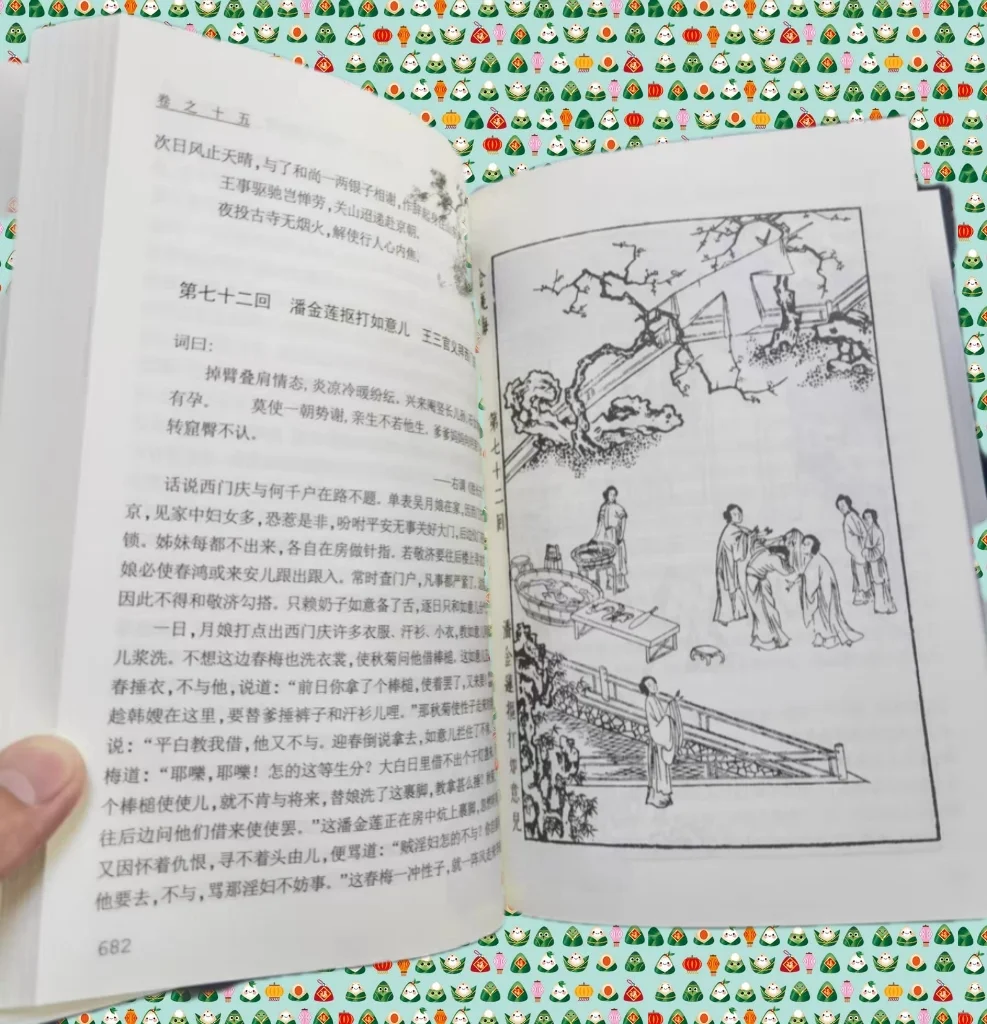 卷之十五
次日风止天晴，与了和尚一两银子相谢，作辞起身
王事驱驰岂惮劳，关山迢递赴京朝。
夜投古寺无烟火，解使行人心内焦。
第七十二回 潘金莲抠打如意儿 王三官义拜西门
词曰：
掉臂叠肩情态，炎凉冷暖纷纭。兴来阉竖长儿孙，
有孕。 莫使一朝势谢，亲生不若他生。爹爹妈妈
转窟臀不认。
——右调
话说西门庆与何千户在路不题。单表吴月娘在家，
京，见家中妇女多，恐惹是非，吩咐平安无事关好大门，后边
锁。姊妹每都不出来，各自在房做针指。若敬济要往后楼上
娘必使春鸿或来安儿跟出跟入。常时查门户，凡事都严紧了。
因此不得和敬济勾搭。只赖奶子如意备了舌，逐日只和如意儿
一日，月娘打点出西门庆许多衣服、汗衫、小衣，教如意儿
儿浆洗。不想这边春梅也洗衣裳，使秋菊问他借棒槌。这如意儿
春捶衣，不与他，说道：“前日你拿了个棒槌，使着罢了，又来
趁韩嫂在这里，要替爹捶裤子和汗衫儿哩。”那秋菊使性子
说：“平白教我借，他又不与。迎春倒说拿去，如意儿拦住了不
梅道：“耶嚛，耶嚛！怎的这等生分？大白日里借不出个干灯盏
个棒槌使使儿，就不肯与将来，替娘洗了这裹脚，教拿甚么
往后边问他们借来使使罢。”这潘金莲正在房中炕上裹脚，
又因怀着仇恨，寻不着头由儿，便骂道：“贼淫妇怎的不与？你
他要去，不与，骂那淫妇不妨事。”这春梅一冲性子，就一阵风走
682
第七十二回
潘金莲抠打如意儿